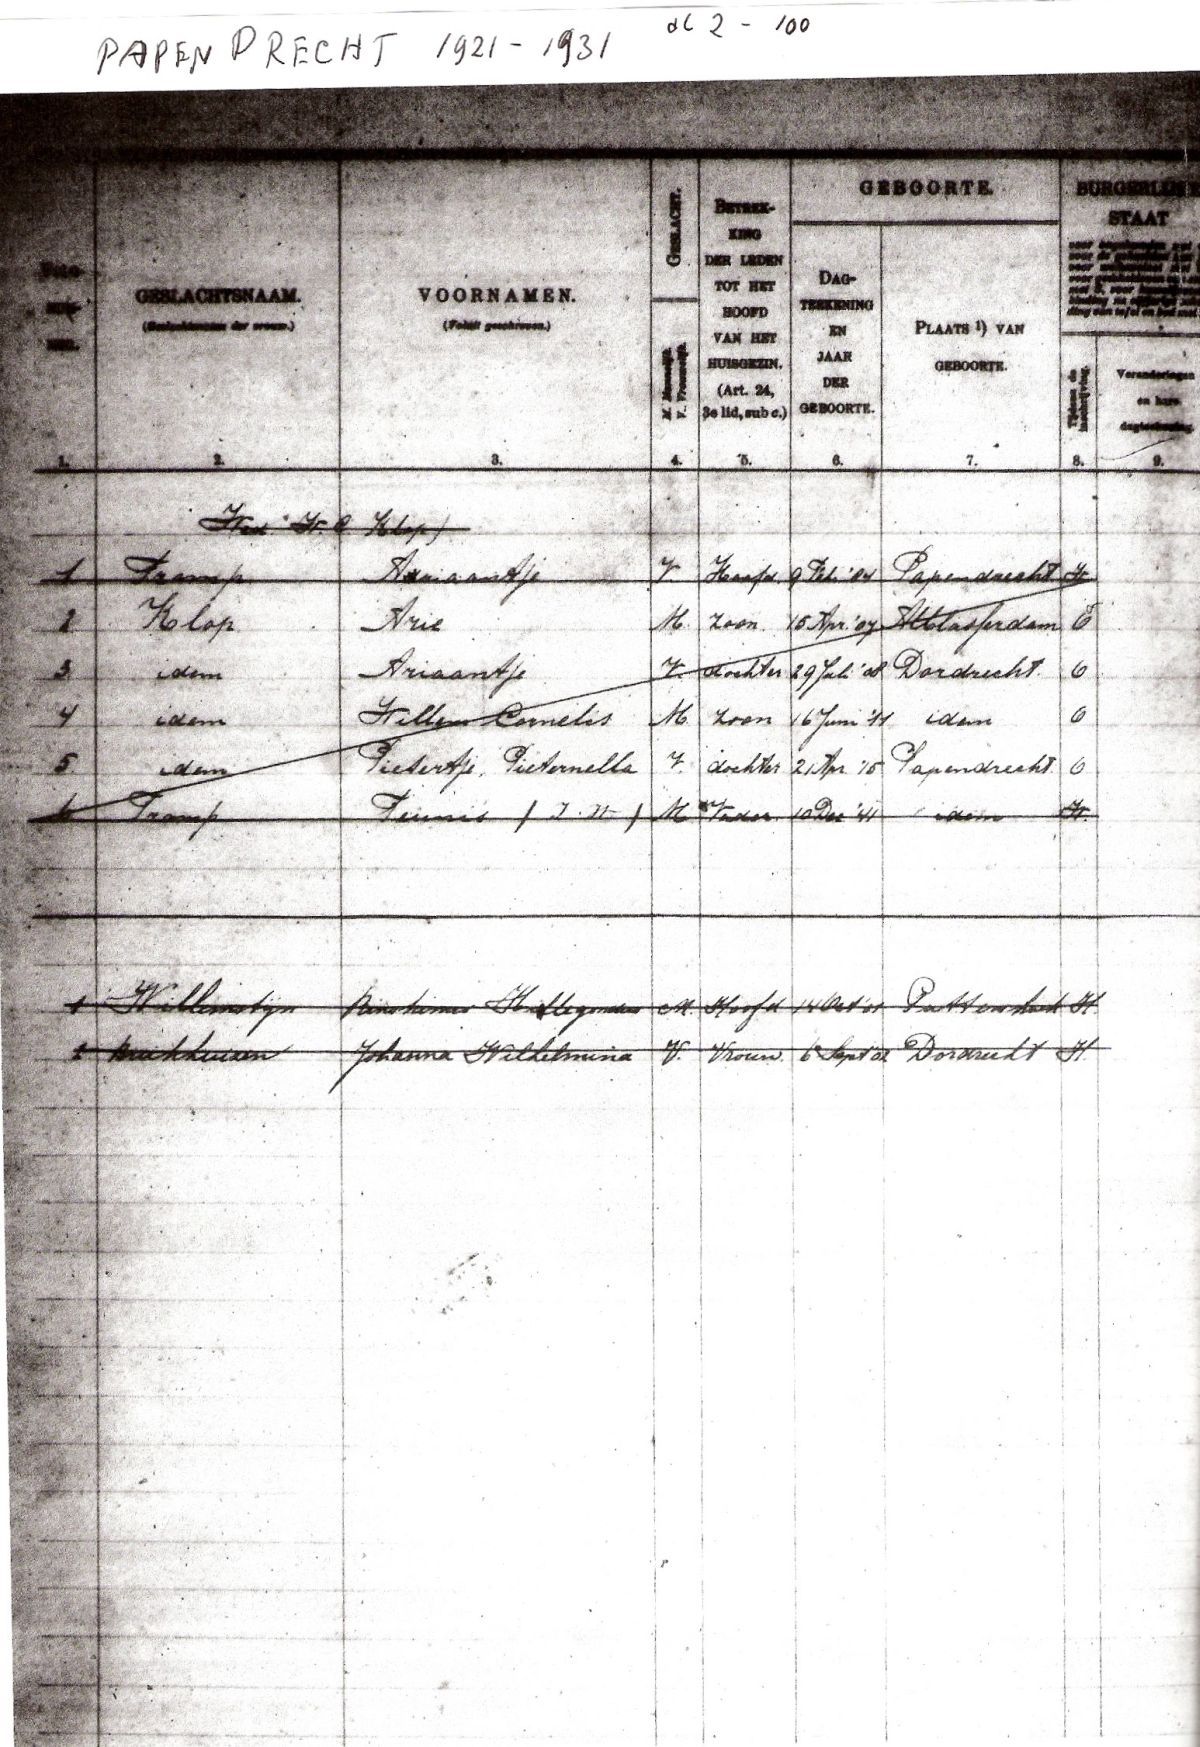 PAPENDRECHT 1921-1931 dl 2 - 100
GEBOORTE.
BURGERLIJKE
STAAT
GESLACHT.
BETREK-
KING
DER LEDEN
TOT HET
HOOFD
VAN HET
HUISGEZIN.
(Art. 24,
3e lid, sub c.)
GESLACHTSNAAM.
VOORNAMEN.
(Voluit geschreven.)
M. Mannelijk.
V. Vrouwelijk.
DAG-
TEEKENING
EN
JAAR
DER
GEBOORTE.
PLAATS 1) VAN
GEBOORTE.
Tijdens de
inschrijving.
Veranderingen
en hare
dagteekening.
1. 2. 3. 4. 5. 6. 7. 8. 9.
Wed. W. C. Klop)
1 Tramp Adriaantje V Hoofd 9 Feb. Papendrecht W
2 Klop Arie M. zoon 15 Apr. '07 Alblasserdam O
3 idem Ariaantje V. dochter 29 Juli '08 Dordrecht. O
4 idem Willem Cornelis M. zoon 16 Juni '11 idem O
5. idem Pietertje Pieternella V. dochter 21 Apr '15 Papendrecht. O
6 Tramp Teunis M Vader 10 Dec '41 idem W.
1 Willemstijn M. Hoofd 14 Oct H
2 Johanna Wilhelmina V. Vrouw. 6 Sept '02 Dordrecht H.